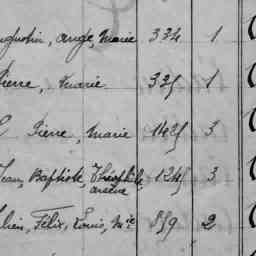 Augustin, Ange, Marie 334 1
Pierre, Marie 325 1
Pierre, Marie 1425 3
Jean, Baptiste, Théophile 1245 3
arsène
Félix, Louis, M.ie 859 2